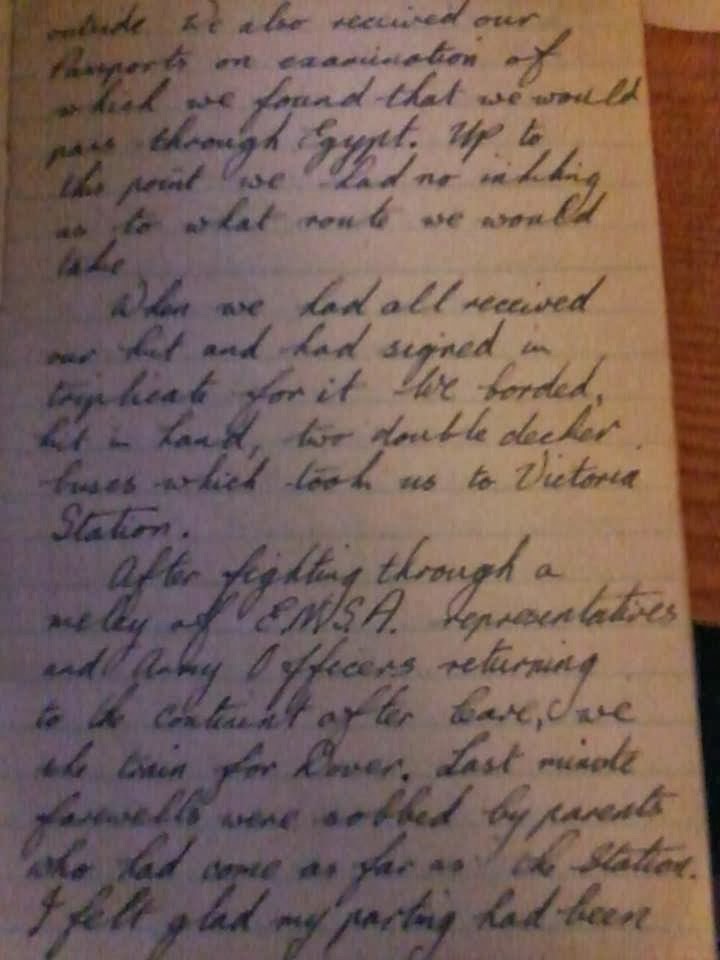 outside We also received our
Passports on examination of
which we found that we would
pass through Egypt. Up to
this point we had no inkling
as to what route we would
take
When we had all received
our kit and had signed in
triplicate for it We borded,
kit in hand, two double decker
buses which took us to Victoria
Station.
After fighting through a
meley of E.N.S.A. representatives
and Army Officers returning
to the continent after leave, we
the train for Dover. Last minute
farewells were sobbed by parents
who had come as far as the Station.
I felt glad my parting had been